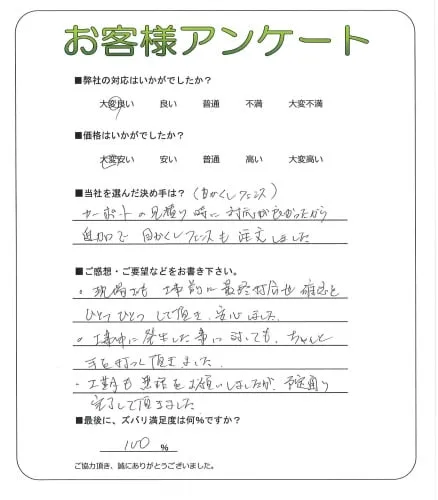 お客様アンケート
■弊社の対応はいかがでしたか?
大変良い 良い 普通 不満 大変不満
■価格はいかがでしたか?
大変安い 安い 普通 高い 大変高い
■当社を選んだ決め手は?(目かくしフェンス)
カーポートの見積り時に対応が良かったから
追加で目かくしフェンスも注文しました
■ご感想・ご要望などをお書き下さい。
・現場でも工事前に最終打合せ確認を
ひとつひとつして頂き、安心しました。
・工事中に発生した事に対しても、ちゃんと
手を打って頂きました。
・工事も無理をお願いしましたが、予定通り
完了して頂きました
■最後に、ズバリ満足度は何%ですか?
100 %
ご協力頂き、誠にありがとうございました。